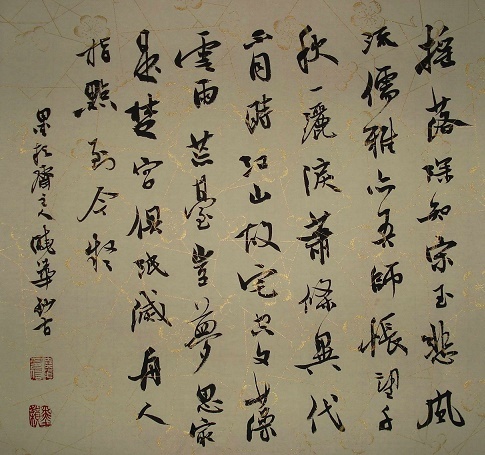 搖落深知宋玉悲風
流儒雅亦吾師悵望千
秋一灑淚蕭條異代
不同時江山故宅空文藻
雲雨荒臺豈夢思最
是楚宮俱泯滅舟人
指點到今疑
齋主人曉華